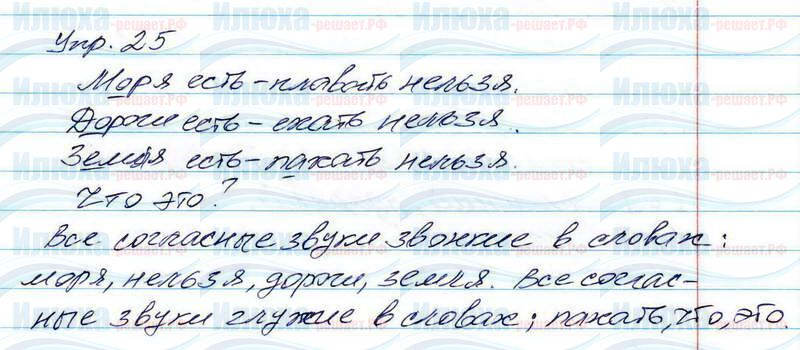 Упр. 25
Моря есть - плавать нельзя.
Дороги есть - ехать нельзя.
Земля есть - пахать нельзя.
Что это?
Все согласные звуки звонкие в словах:
моря, нельзя, дороги, земля. Все соглас-
ные звуки глухие в словах: пахать, что, это.